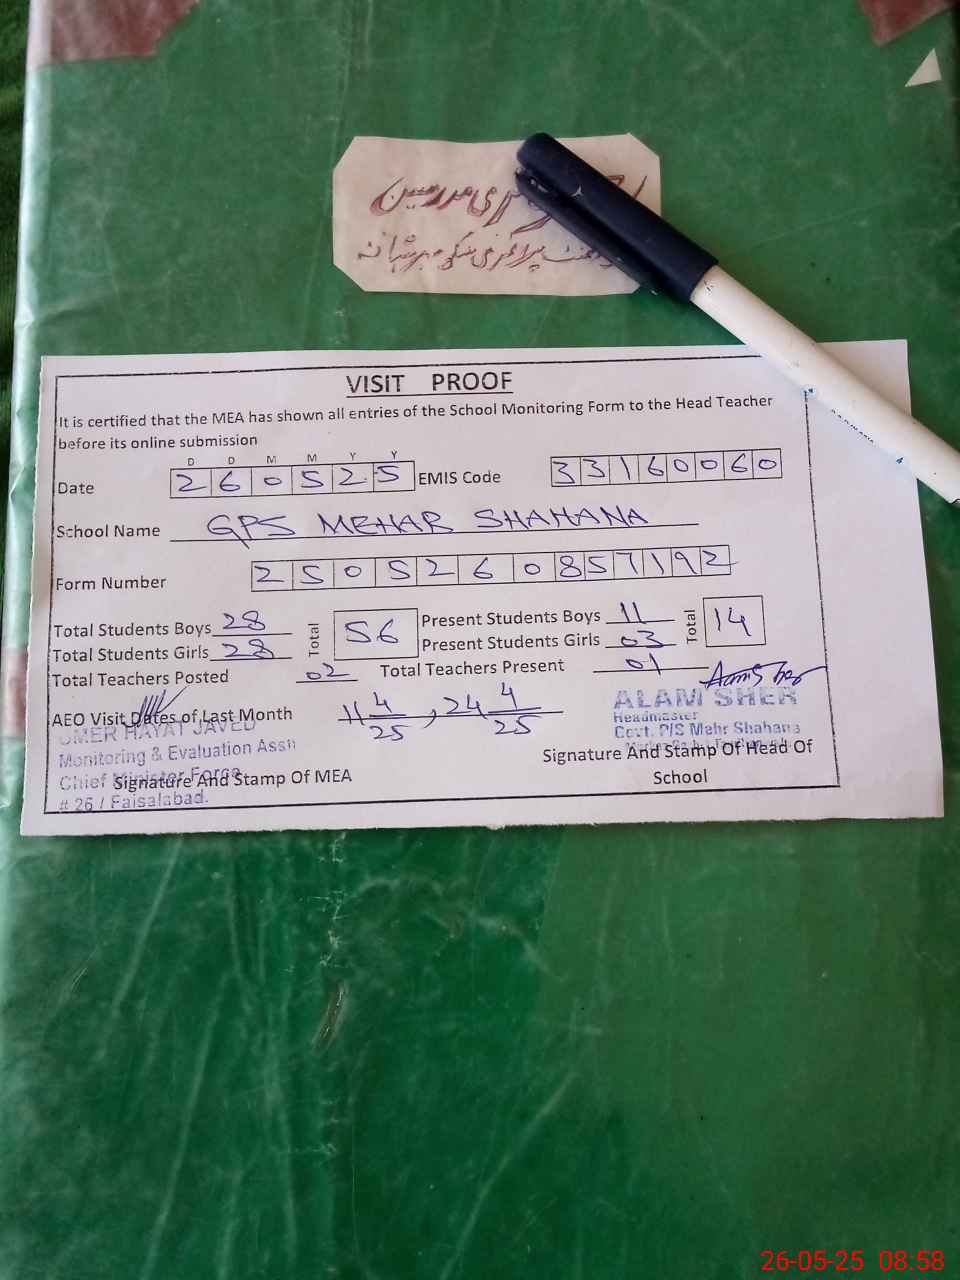 ی مدرسین
پرائمری سکول مہر شہانہ
VISIT PROOF
It is certified that the MEA has shown all entries of the School Monitoring Form to the Head Teacher
before its online submission
D D M M Y Y
Date 2 6 0 5 2 5 EMIS Code 3 3 1 6 0 0 6 0
School Name GPS MEHAR SHAHANA
Form Number 2 5 0 5 2 6 0 8 5 7 1 9 2
Total Students Boys 28 Total 56 Present Students Boys 11 Total 14
Total Students Girls 28 Present Students Girls 03
Total Teachers Posted 02 Total Teachers Present 01
AEO Visit Dates of Last Month 11 4/25, 24 4/25
ALAM SHER
Headmaster
Govt. P/S Mehr Shahana
UMER HAYAT JAVED
Monitoring & Evaluation Asstt
Chief Minister Force
# 26 / Faisalabad.
Signature And Stamp Of MEA
Signature And Stamp Of Head Of
School
26-05-25 08:58